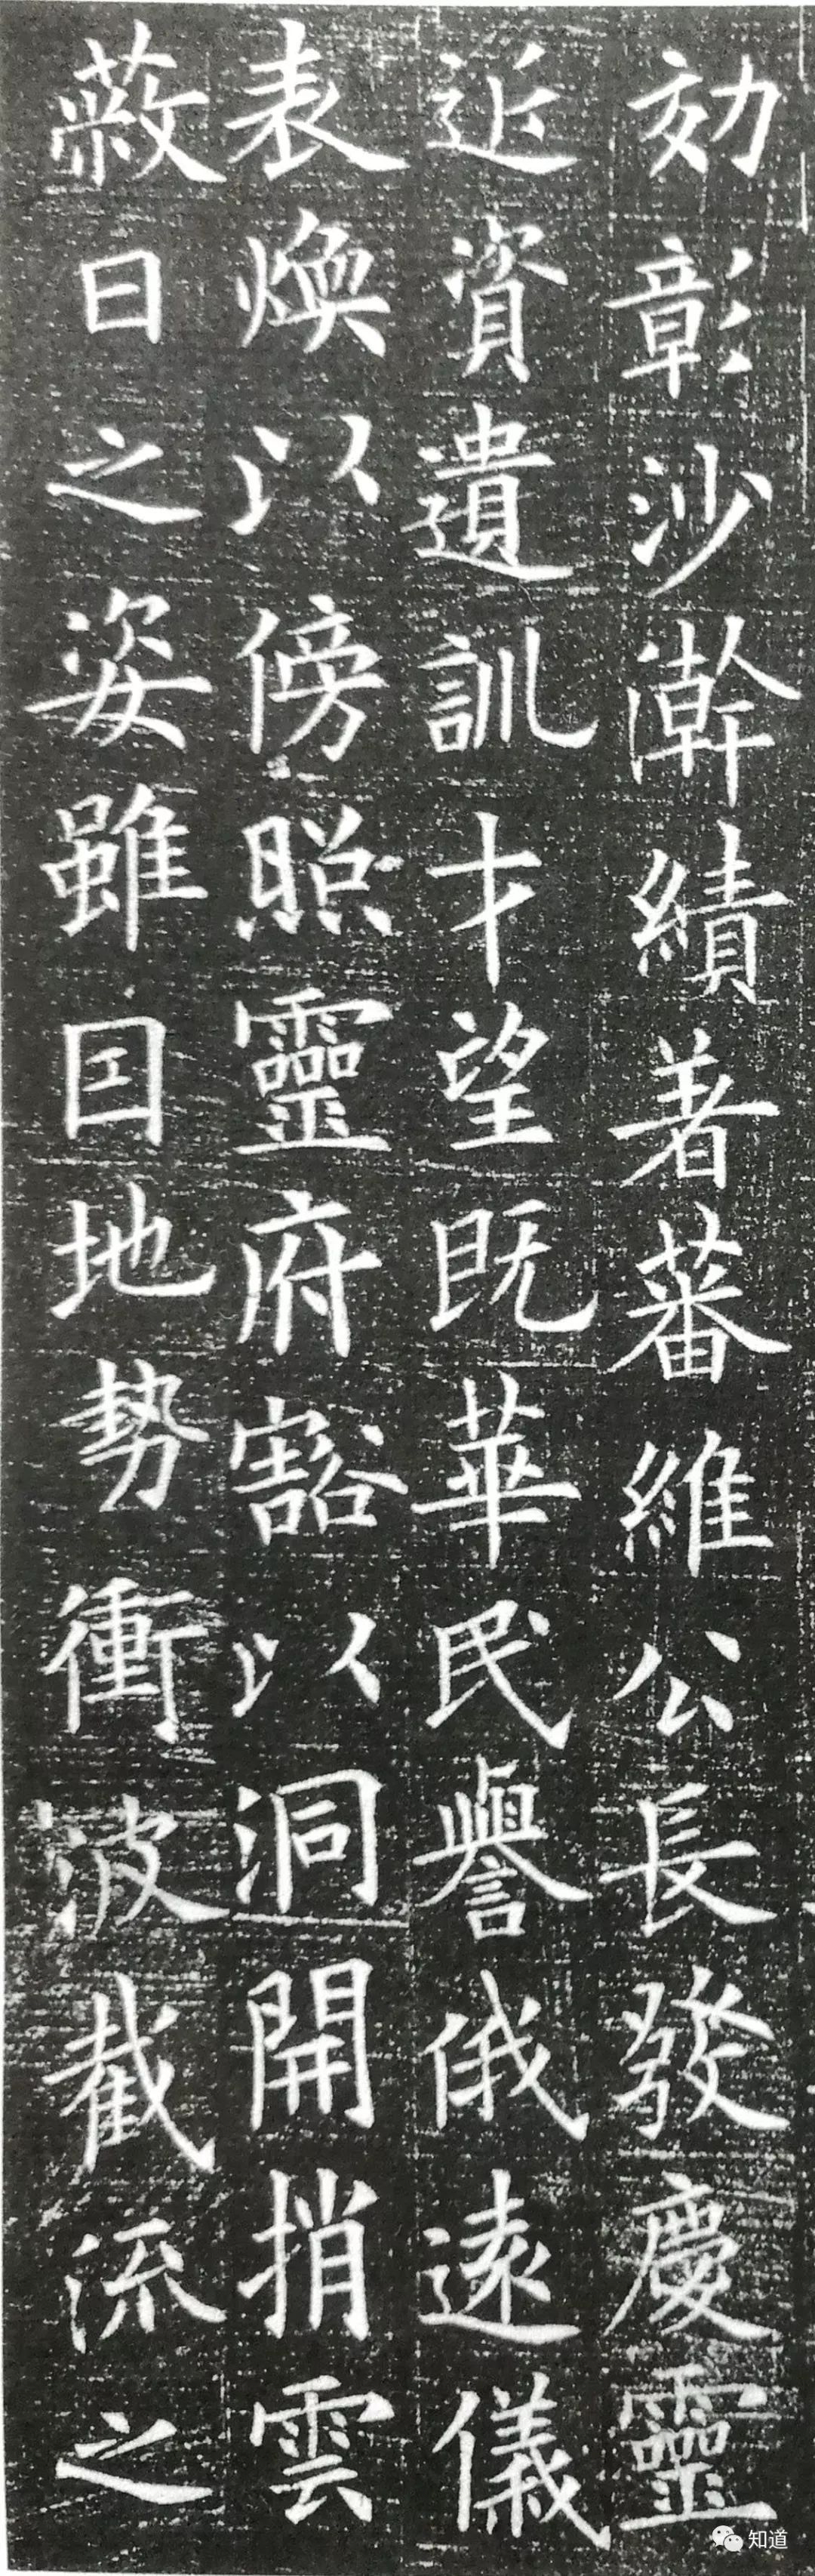 効彰沙澣績著蕃維公長發慶靈
近資遺訓才望既華民譽俄遠儀
表煥以傍照靈府豁以洞開捎雲
蔽日之姿雖因地勢衝波截流之
知道